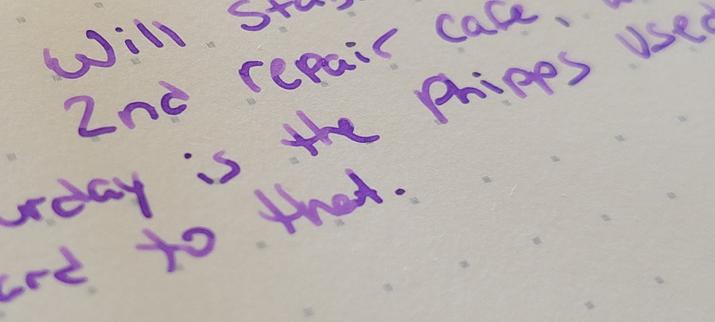 Will sta
2nd repair cafe,
urday is the Phipps used
ard to that.